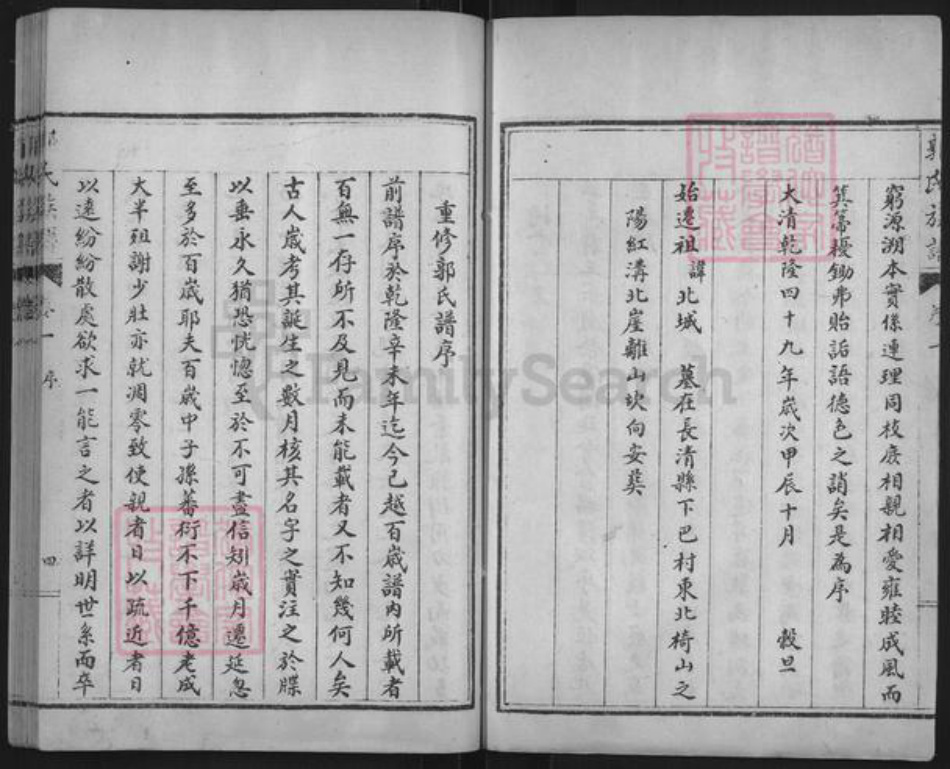 窮源溯本實係連理同枝庻相親相愛雍睦成風而
箕箒耰鋤弗貽詬語德色之誚矣是為序
大清乾隆四十九年歲次甲辰十月 穀旦
始遷祖諱北城 墓在長清縣下巴村東北椅山之
陽紅溝北崖離山坎向安葬
郭氏族譜
序
重修郭氏譜序
前譜序於乾隆辛未年迄今已越百歲譜內所載者
百無一存所不及見而未能載者又不知幾何人矣
古人歲考其誕生之數月核其名字之實注之於牒
以垂永久猶恐恍惚至於不可盡信矧歲月遷延忽
至多於百歲耶夫百歲中子孫蕃衍不下千億老成
大半殂謝少壯亦就凋零致使親者日以疏近者日
以遠紛紛散處欲求一能言之者以詳明世系而卒
氏族譜
卷一 序 四
FamilySearch